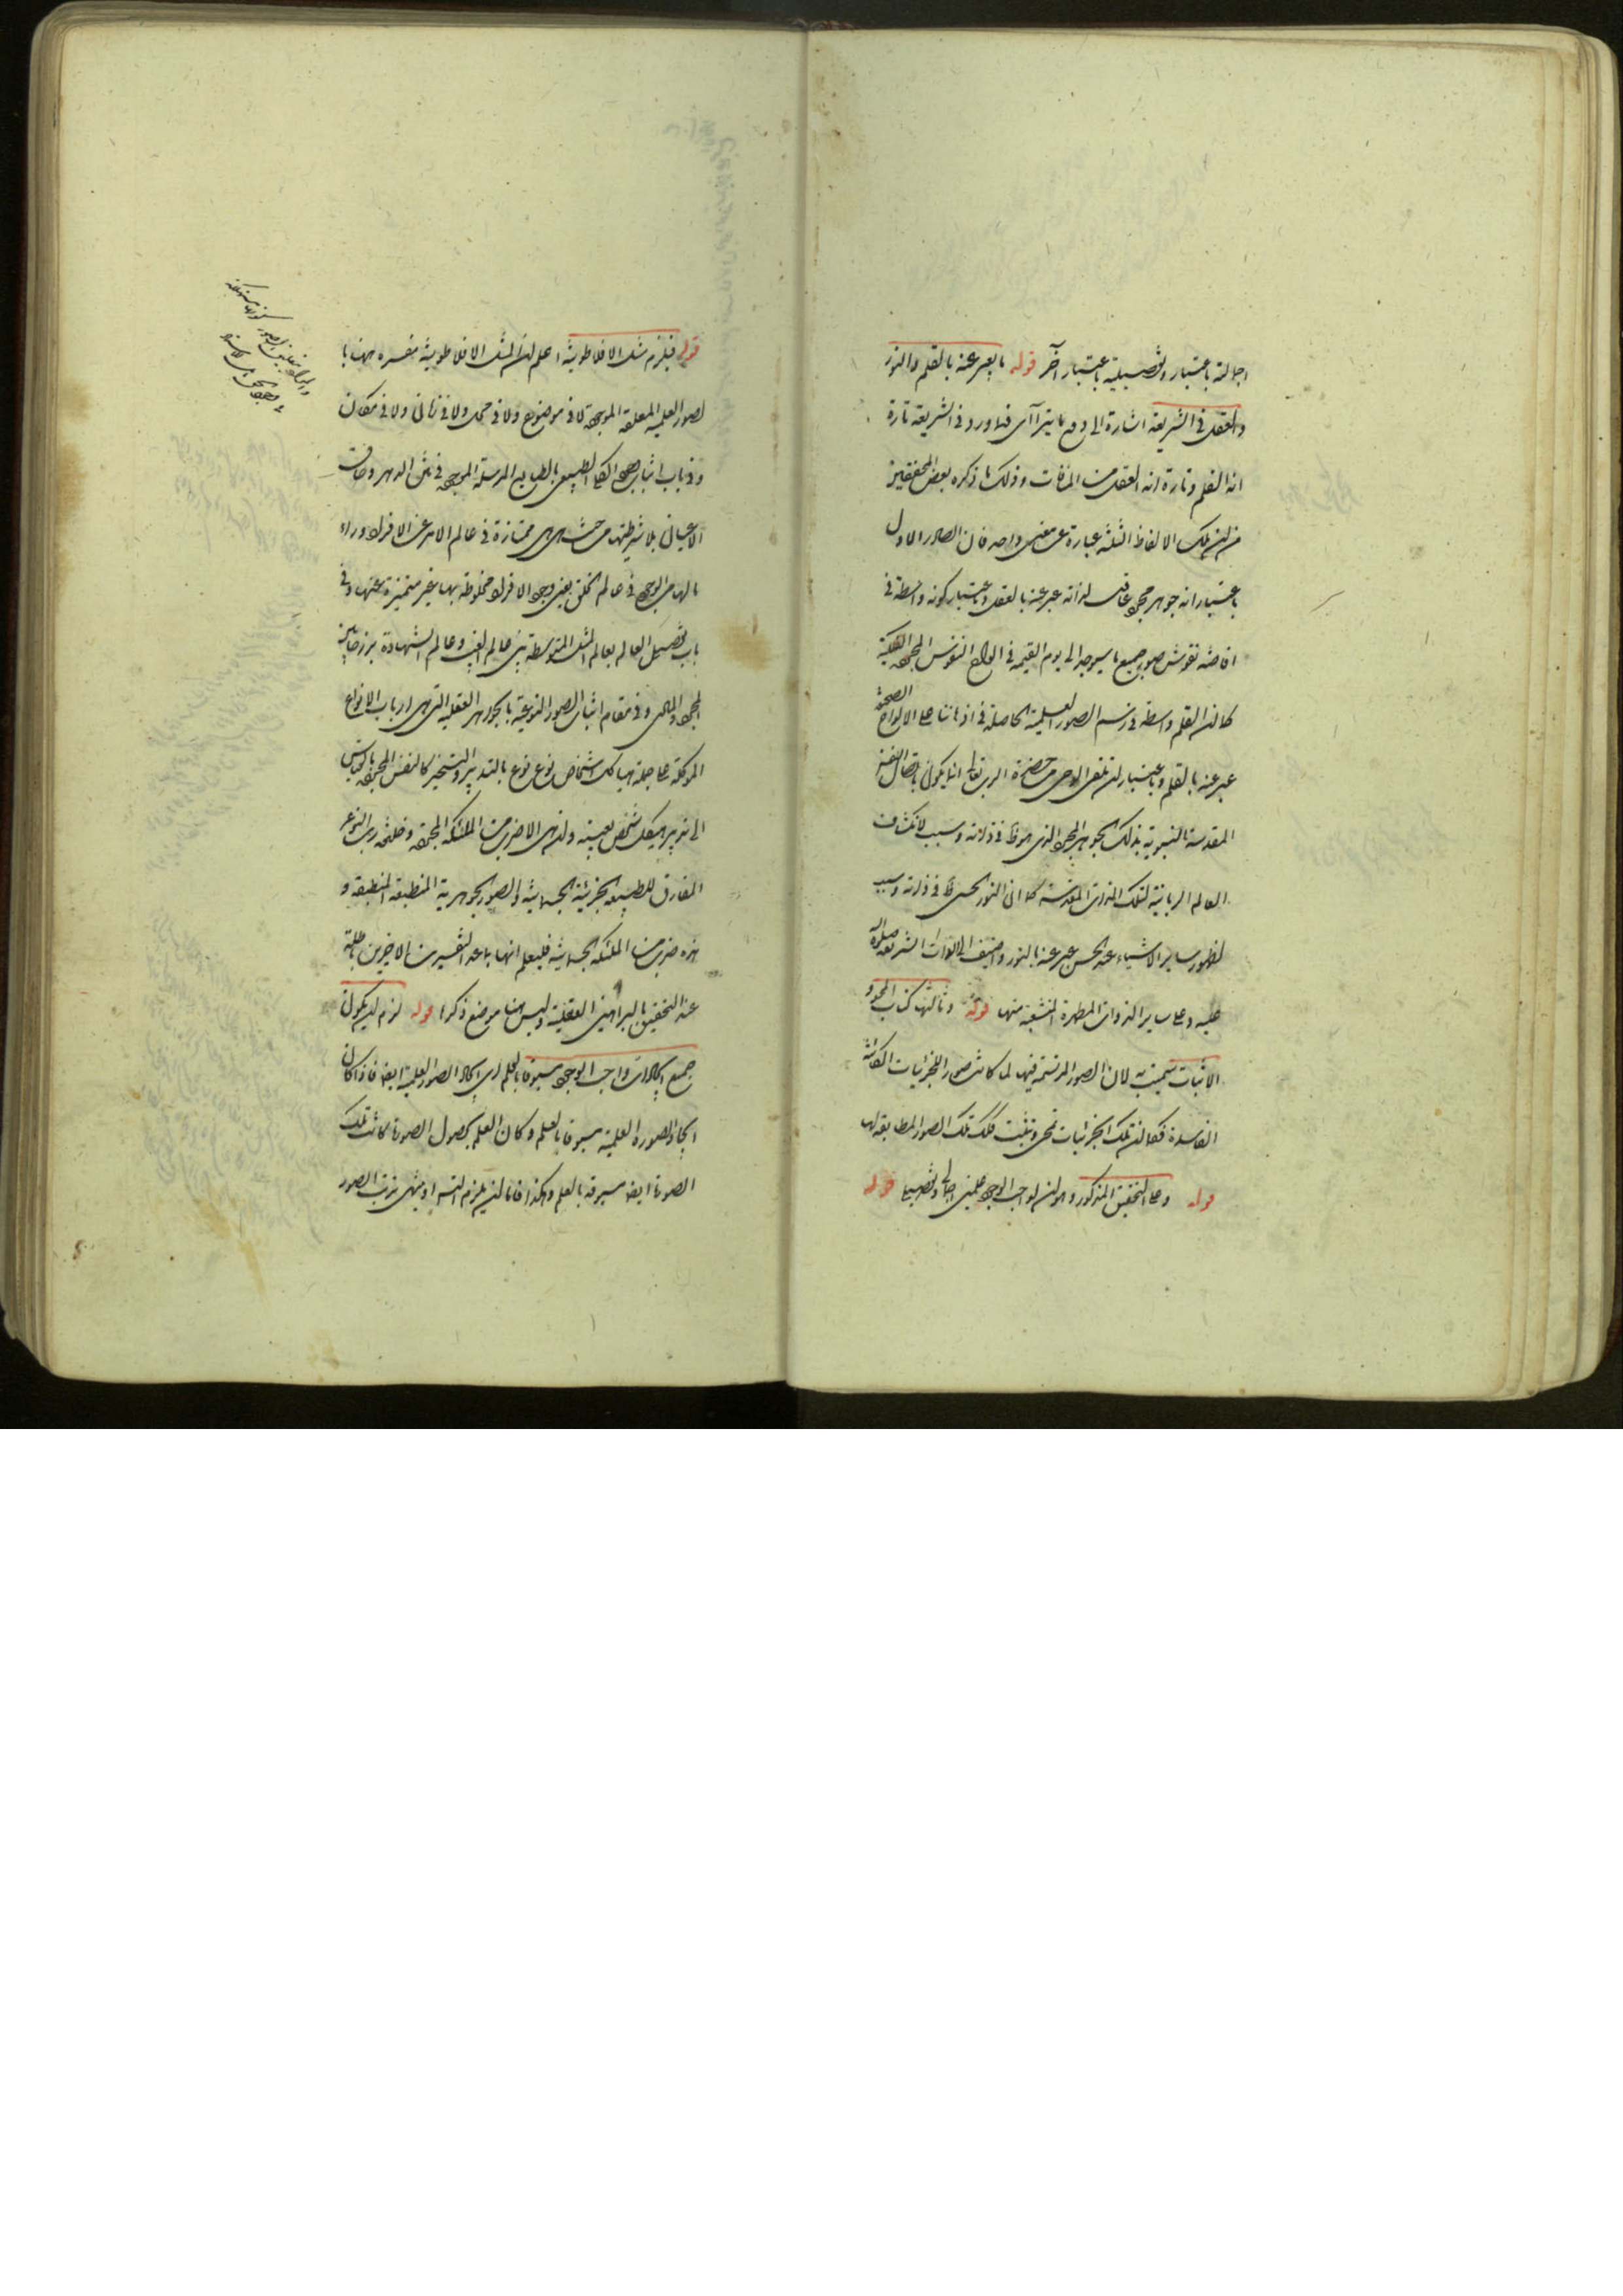 اجمالية باعتبار وتفصيلية باعتبار آخر قوله ما يعبر عنه بالقلم والنور
والعقل في الشريعة اشارة الى دفع ما يتراآى فقد ورد في الشريعة تارة
انه القلم وتارة انه العقل وذلك ما ذكره بعض المحققين
من ان تلك الالفاظ الثلثة عبارة عن معنى واحد فان الصادر الاول
باعتبار انه جوهر مجرد عاقل لذاته عبر عنه بالعقل وباعتبار كونه واسطة في
افاضة نقوش صور جميع ما سيوجد الى يوم القيمة في الواح النفوس المجردة الفلكية
كما ان القلم واسطة في رسم الصور العلمية الحاصلة في اذهاننا على الالواح
عبر عنه بالقلم وباعتبار ان تلقى الوحي من حضرة الرب تعالى انما يكون باتصال النفس
المقدسة النبوية بذلك الجوهر المجرد الذي هو ظ في ذاته وسبب لانكشاف
العالم الربانية لتلك الذوات المقدسة كما ان النور الحسي ظ في ذاته وسبب
لظهور ساير الاشياء عند الحس عبر عنه بالنور واضيف الى الذات الشريفة
عليه وعلى ساير الذوات المطهرة المنشعبة منها قوله وثالثها كتاب المحو و
الاثبات سميت به لان الصور المرتسمة فيها لما كانت صور الجزئيات الكائنة
الفاسدة فكما ان تلك الجزئيات تمحى وتثبت كذلك تلك الصور المطابقة لها
قوله وعلى التحقيق المذكور وهو ان لواجب الوجود علمين اجمالي وتفصيلي قوله
قوله فيلزم مثل الافلاطونية اعلم ان المثل الافلاطونية مفسرة ههنا با
لصور العلمية المعلقة الموجودة لا في موضوع ولا في محل ولا في زمان ولا في مكان
وفي باب اثبات وجود الكلي الطبيعي بالطبايع المرسلة الموجودة في متن الدهر وحاق
الاعيان بلا شرطيتها من حيث هي هي ممتازة في عالم الامر عن الافراد وراء
ما لها من الوجود في عالم الخلق بعين وجود الافراد مخلوطة بها غير متميزة عنها وفي
باب تفصيل العالم بعالم المثل المتوسطة بين عالم الغيب وعالم الشهادة برزخا بين
المجرد والمادي وفي مقام اثبات الصور النوعية بالجواهر العقلية التي هي ارباب الانواع
الموكلة على جملة هياكل اشخاص نوع نوع بالتدبير والتسخير كالنفس المجردة بالقياس
الى تدبير هيكل شخص بعينه وان هي الا ضرب من الملئكة المجردة وخليفة رب النوع
المفارق للطبيعة الجزئية الجسمانية والصور الجوهرية المنطبعة المنطبعة و
هذه ضرب من الملئكة الجسمانية فليعلم انها ما عدا التفسيرين الاخيرين باطلة
عند التحقيق بالبراهين العقلية وليس هنا موضع ذكرها قوله لزم ان يكون
جميع ايجادات واجب الوجود مسبوقا بالعلم اي ايجاد الصور العلمية ايضا فاذا كان
ايجاد الصورة العلمية مسبوقا بالعلم وكان العلم بحصول الصورة كانت تلك
الصورة ايضا مسبوقة بالعلم وهكذا فاما ان يلزم التسلسل او ينتهي ترتب الصور